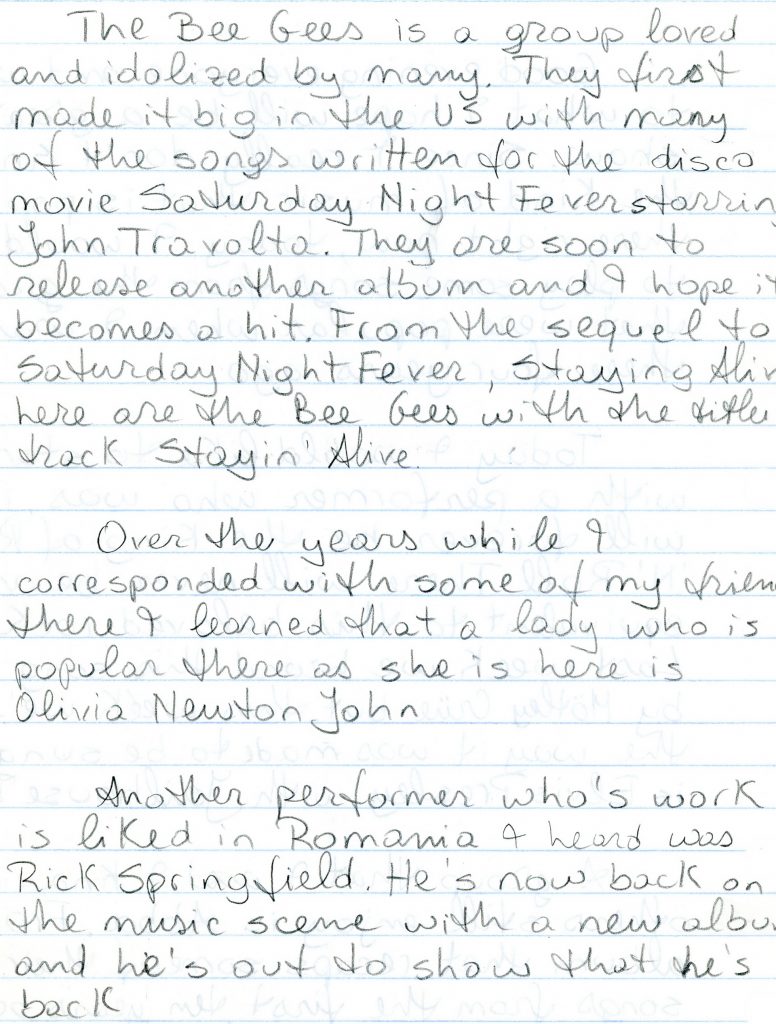 The Bee Gees is a group loved
and idolized by many. They first
made it big in the US with many
of the songs written for the disco
movie Saturday Night Fever starrin
John Travolta. They are soon to
release another album and I hope it
becomes a hit. From the sequel to
Saturday Night Fever, Staying Aliv
here are the Bee Gees with the title
track Stayin' Alive.
Over the years while I
corresponded with some of my frien
there I learned that a lady who is
popular there as she is here is
Olivia Newton John
Another performer who's work
is liked in Romania I heard was
Rick Springfield. He's now back on
the music scene with a new albu
and he's out to show that he's
back